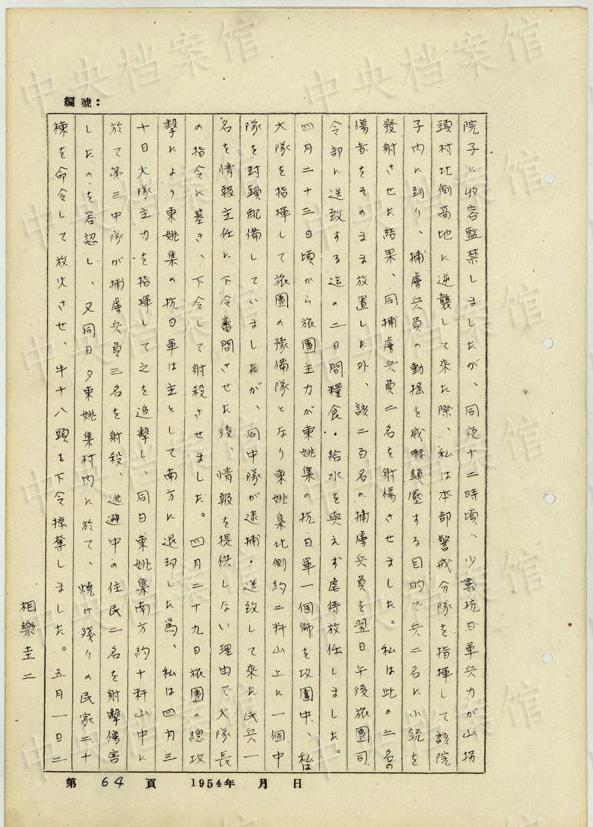 編號：
院子に收容監禁しましたが、同夜十二時頃、少数抗日軍兵力が山拐
頭村北側高地に逆襲して來た際、私は本部警戒分隊を指揮して該院
子内に到り、捕虜兵員の動揺を威嚇鎮壓する目的で兵二名に小銃を
發射させた結果、同捕虜兵員二名を射傷させました。私は此の二名の
傷者をそのまま放置した外、該二百名の捕虜兵員を翌日午後旅團司
令部に送致する迄の二日間糧食・給水を與えず虐待放任しました。
四月二十三日頃から旅團主力が東姚集の抗日軍一個師を攻囲中、私は
大隊を指揮して旅團の豫備隊となり東姚集北側約二粁山上に一個中
隊を封鎖配備していましたが、同中隊が逮捕・送致して來た民兵一
名を情報主任に下令審問させた後、情報を提供しない理由で大隊長
の指令に基き、下令して射殺させました。四月二十九日旅團の總攻
撃により東姚集の抗日軍は主として南方に退却した爲、私は四月三
十日大隊主力を指揮して之を追撃し、同日東姚集南方約十粁山中に
於て第三中隊が捕虜兵員三名を射殺、逃避中の住民二名を射撃傷害
したのを容認し、又同日夕東姚集村内に於て、焼け残りの民家二十
棟を命令して放火させ、牛十八頭を下令掠奪しました。五月一日二
相樂圭二
第 64 頁 1954年 月 日
中央档案馆